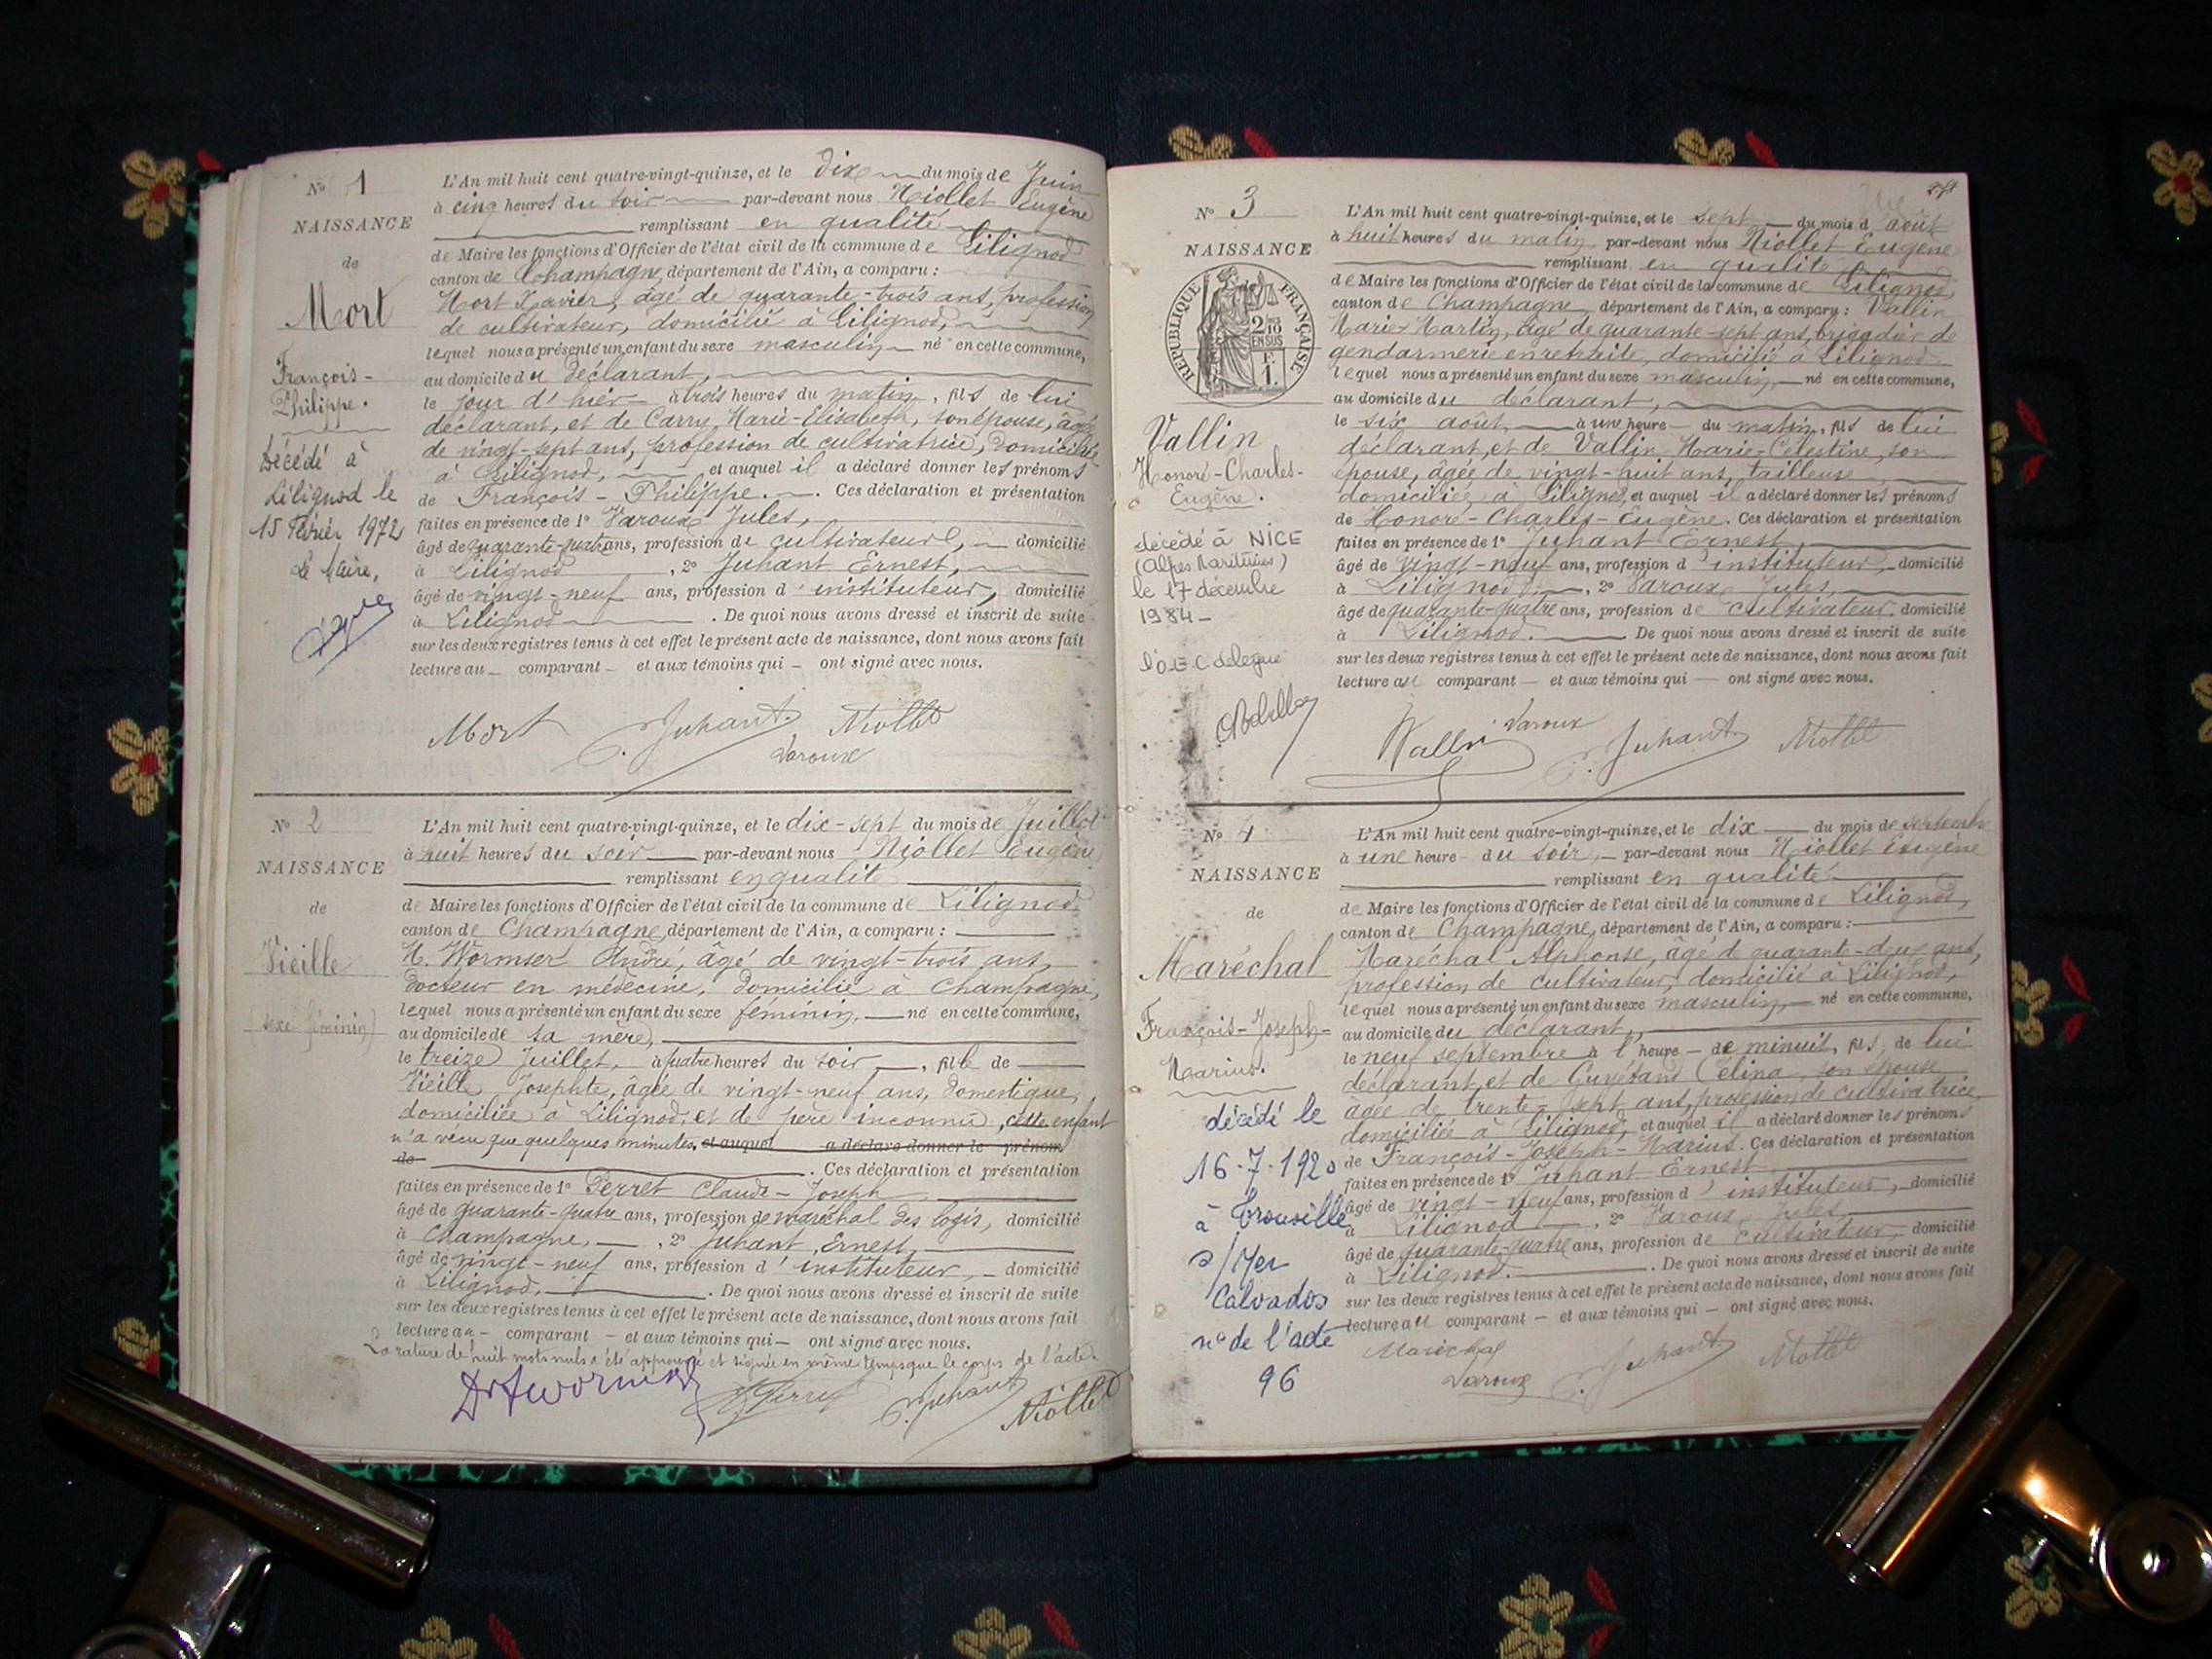 N° 1
NAISSANCE
de
Mort
François-
Philippe.
Décédé à
Lilignod le
15 Février 1972
Le Maire,
L'An mil huit cent quatre-vingt-quinze, et le dix du mois de Juin
à cinq heures du soir par-devant nous Niollet Eugène
remplissant en qualité
de Maire les fonctions d'Officier de l'état civil de la commune de Lilignod
canton de Champagne, département de l'Ain, a comparu :
Mort Xavier, âgé de quarante-trois ans, profession
de cultivateur, domicilié à Lilignod,
lequel nous a présenté un enfant du sexe masculin né en cette commune,
au domicile du déclarant,
le jour d'hier à trois heures du matin, fils de lui
déclarant, et de Carry Marie-Elisabeth, son épouse, âgée
de vingt-sept ans, profession de cultivatrice, domiciliée
à Lilignod, et auquel il a déclaré donner les prénoms
de François-Philippe. Ces déclaration et présentation
faites en présence de 1° Varoux Jules,
âgé de quarante-quatre ans, profession de cultivateur, domicilié
à Lilignod, 2° Juhant Ernest,
âgé de vingt-neuf ans, profession d'instituteur, domicilié
à Lilignod. De quoi nous avons dressé et inscrit de suite
sur les deux registres tenus à cet effet le présent acte de naissance, dont nous avons fait
lecture au comparant et aux témoins qui ont signé avec nous.
Mort E. Juhant Niollet
Varoux
N° 2
NAISSANCE
de
Vieille
(sexe féminin)
L'An mil huit cent quatre-vingt-quinze, et le dix-sept du mois de Juillet
à huit heures du soir par-devant nous Niollet Eugène
remplissant en qualité
de Maire les fonctions d'Officier de l'état civil de la commune de Lilignod
canton de Champagne, département de l'Ain, a comparu :
M. Wormser André, âgé de vingt-trois ans,
docteur en médecine, domicilié à Champagne,
lequel nous a présenté un enfant du sexe féminin, né en cette commune,
au domicile de sa mère,
le treize Juillet, à quatre heures du soir, fille de
Vieille Josephte, âgée de vingt-neuf ans, domestique,
domiciliée à Lilignod, et de père inconnu, cette enfant
n'a vécu que quelques minutes. et auquel a déclaré donner le prénom
de . Ces déclaration et présentation
faites en présence de 1° Perret Claude-Joseph
âgé de quarante-quatre ans, profession de maréchal des logis, domicilié
à Champagne, 2° Juhant Ernest,
âgé de vingt-neuf ans, profession d'instituteur, domicilié
à Lilignod. De quoi nous avons dressé et inscrit de suite
sur les deux registres tenus à cet effet le présent acte de naissance, dont nous avons fait
lecture au comparant et aux témoins qui ont signé avec nous.
La rature de huit mots nuls a été approuvé et signée en même temps que le corps de l'acte.
Perret E. Juhant Niollet
N° 3
NAISSANCE
REPUBLIQUE FRANÇAISE
2/10
EN SUS
F.
1.
Vallin
Honoré-Charles-
Eugène.
décédé à NICE
(Alpes Maritimes)
le 17 décembre
1984-
l'O.E.C délégué
L'An mil huit cent quatre-vingt-quinze, et le sept du mois d'août
à huit heures du matin, par-devant nous Niollet Eugène
remplissant en qualité
de Maire les fonctions d'Officier de l'état civil de la commune de Lilignod,
canton de Champagne, département de l'Ain, a comparu : Vallin
Marie-Martin, âgé de quarante-sept ans, brigadier de
gendarmerie en retraite, domicilié à Lilignod.
lequel nous a présenté un enfant du sexe masculin, né en cette commune,
au domicile du déclarant,
le six août, à une heure du matin, fils de lui
déclarant, et de Vallin Marie-Célestine, son
épouse, âgée de vingt-huit ans, tailleuse
domiciliée à Lilignod, et auquel il a déclaré donner les prénoms
de Honoré-Charles-Eugène. Ces déclaration et présentation
faites en présence de 1° Juhant Ernest,
âgé de vingt-neuf ans, profession d'instituteur, domicilié
à Lilignod, 2° Varoux Jules,
âgé de quarante-quatre ans, profession de cultivateur, domicilié
à Lilignod. De quoi nous avons dressé et inscrit de suite
sur les deux registres tenus à cet effet le présent acte de naissance, dont nous avons fait
lecture au comparant et aux témoins qui ont signé avec nous.
Vallin Varoux E. Juhant Niollet
N° 4
NAISSANCE
de
Maréchal
François-Joseph-
Marius.
décédé le
16-7-1920
à Trouville
s/Mer
Calvados
n° de l'acte
96
L'An mil huit cent quatre-vingt-quinze, et le dix du mois de septembre
à une heure du soir, par-devant nous Niollet Eugène
remplissant en qualité
de Maire les fonctions d'Officier de l'état civil de la commune de Lilignod,
canton de Champagne, département de l'Ain, a comparu :
Maréchal Alphonse, âgé de quarante-deux ans,
profession de cultivateur, domicilié à Lilignod,
lequel nous a présenté un enfant du sexe masculin, né en cette commune,
au domicile du déclarant,
le neuf septembre à l'heure de minuit, fils de lui
déclarant, et de Guyétand Célina, son épouse
âgée de trente-sept ans, profession de cultivatrice,
domiciliée à Lilignod, et auquel il a déclaré donner les prénoms
de François-Joseph-Marius. Ces déclaration et présentation
faites en présence de 1° Juhant Ernest
âgé de vingt-neuf ans, profession d'instituteur, domicilié
à Lilignod, 2° Varoux Jules,
âgé de quarante-quatre ans, profession de cultivateur, domicilié
à Lilignod. De quoi nous avons dressé et inscrit de suite
sur les deux registres tenus à cet effet le présent acte de naissance, dont nous avons fait
lecture au comparant et aux témoins qui ont signé avec nous.
Maréchal E. Juhant Niollet
Varoux